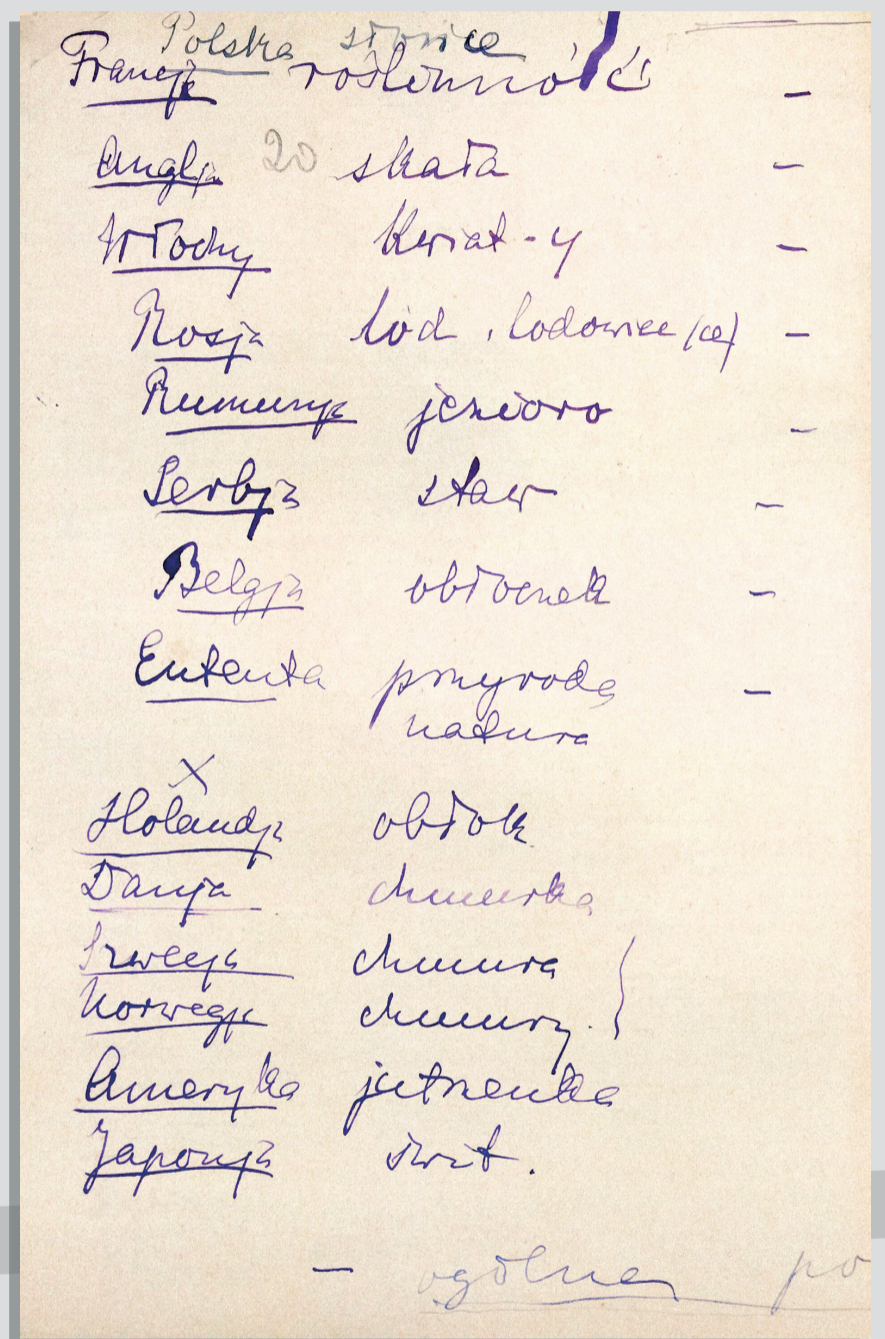 Polska słońce
Francja roślinność
Anglja 20 skała –
Włochy Kwiat-y –
Rosja lód, lodowiec (ce) –
Rumunja jezioro –
Serbja staw –
Belgja obłoczek –
Ententa przyroda –
natura
X
Holandja obłok
Danja chmurka
Szwecja chmura }
Norwegja chmury.
Ameryka jutrzenka
Japonja świt.
– ogólne po